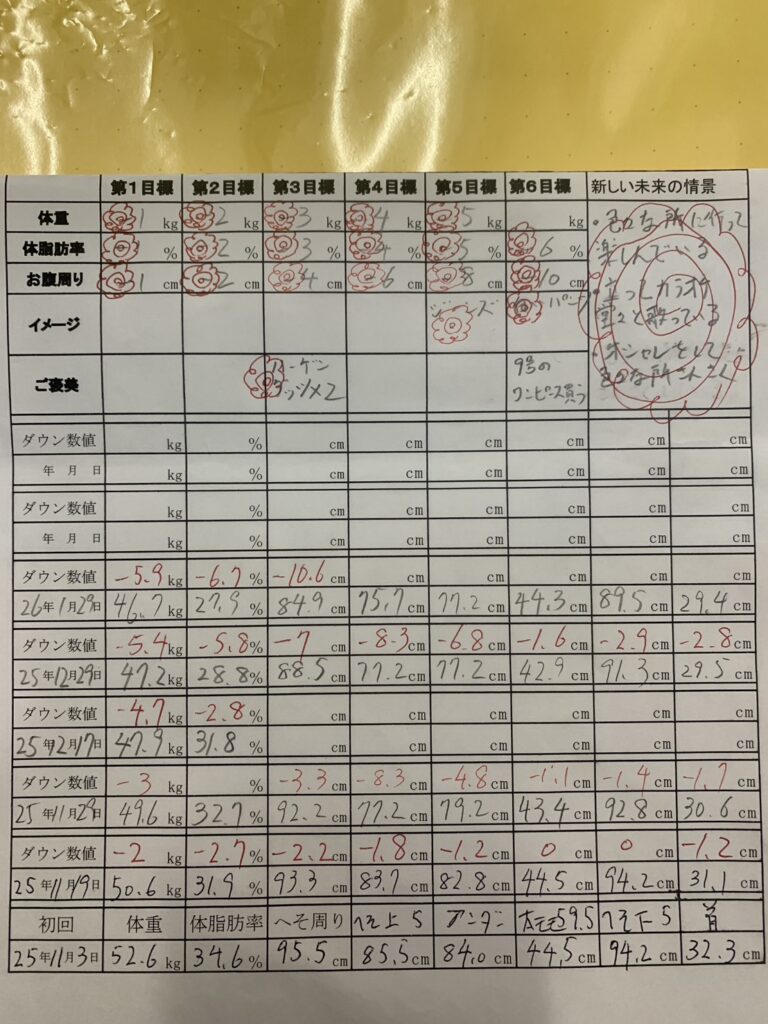 第1目標 第2目標 第3目標 第4目標 第5目標 第6目標 新しい未来の情景
体重 1 kg 2 kg 3 kg 4 kg 5 kg kg ・色々な所に行って
体脂肪率 % 2 % 3 % 4 % 5 % 6 % 楽しんでいる
お腹周り 1 cm 2 cm 4 cm 6 cm 8 cm 10 cm ・立ってカラオケ
イメージ ジーンズ パンツ 堂々と歌っている
・オシャレをして
ご褒美 ハーゲン 9号の 色々な所へ行く
ダッツ×2 ワンピース買う
ダウン数値 kg % cm cm cm cm cm cm
年 月 日 kg cm cm cm cm cm cm
ダウン数値 kg % cm cm cm cm cm cm
年 月 日 kg cm cm cm cm cm cm
ダウン数値 -5.9 kg -6.7 % -10.6 cm cm cm cm cm cm
26年1月29日 46.7 kg 27.9 % 84.9 cm 75.7 cm 77.2 cm 44.3 cm 89.5 cm 29.4 cm
ダウン数値 -5.4 kg -5.8 % -7 cm -8.3 cm -6.8 cm -1.6 cm -2.9 cm -2.8 cm
25年12月29日 47.2 kg 28.8 % 88.5 cm 77.2 cm 77.2 cm 42.9 cm 91.3 cm 29.5 cm
ダウン数値 -4.7 kg -2.8 % cm cm cm cm cm cm
25年12月17日 47.9 kg 31.8 % cm cm cm cm cm cm
ダウン数値 -3 kg % -3.3 cm -8.3 cm -4.8 cm -1.1 cm -1.4 cm -1.7 cm
25年11月29日 49.6 kg 32.7 % 92.2 cm 77.2 cm 79.2 cm 43.4 cm 92.8 cm 30.6 cm
ダウン数値 -2 kg -2.7 % -2.2 cm -1.8 cm -1.2 cm 0 cm 0 cm -1.2 cm
25年11月19日 50.6 kg 31.9 % 93.3 cm 83.7 cm 82.8 cm 44.5 cm 94.2 cm 31.1 cm
初回 体重 体脂肪率 へそ周り へそ上5 アンダー 59.5 へそ下5 首
25年11月3日 52.6 kg 34.6 % 95.5 cm 85.5 cm 84.0 cm 44.5 cm 94.2 cm 32.3 cm